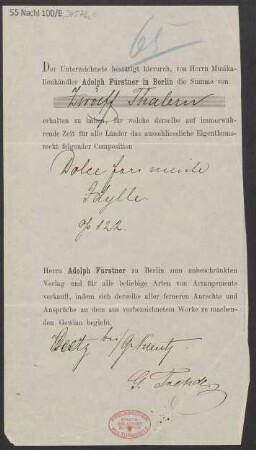 55 Nachl 100/B,
65
Der Unterzeichnete bestätigt hierdurch, von Herrn Musika-
lienhändler Adolph Fürstner in Berlin die Summe von
Zwölf Thalern
erhalten zu haben, für welche derselbe auf immerwäh-
rende Zeit für alle Länder das ausschliessliche Eigenthums-
recht folgender Composition
Dolce far niente
Idylle
op 122.
Herrn Adolph Fürstner zu Berlin zum unbeschränkten
Verlag und für alle beliebige Arten von Arrangements
verkauft, indem sich derselbe aller ferneren Anrechte und
Ansprüche an dem aus vorbezeichneten Werke zu machen-
den Gewinn begiebt.
bei
G.